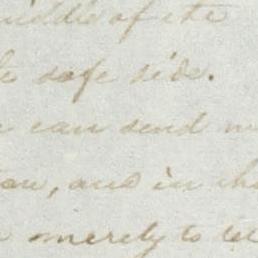 middle of the
safe side.
can send
and in
merely to